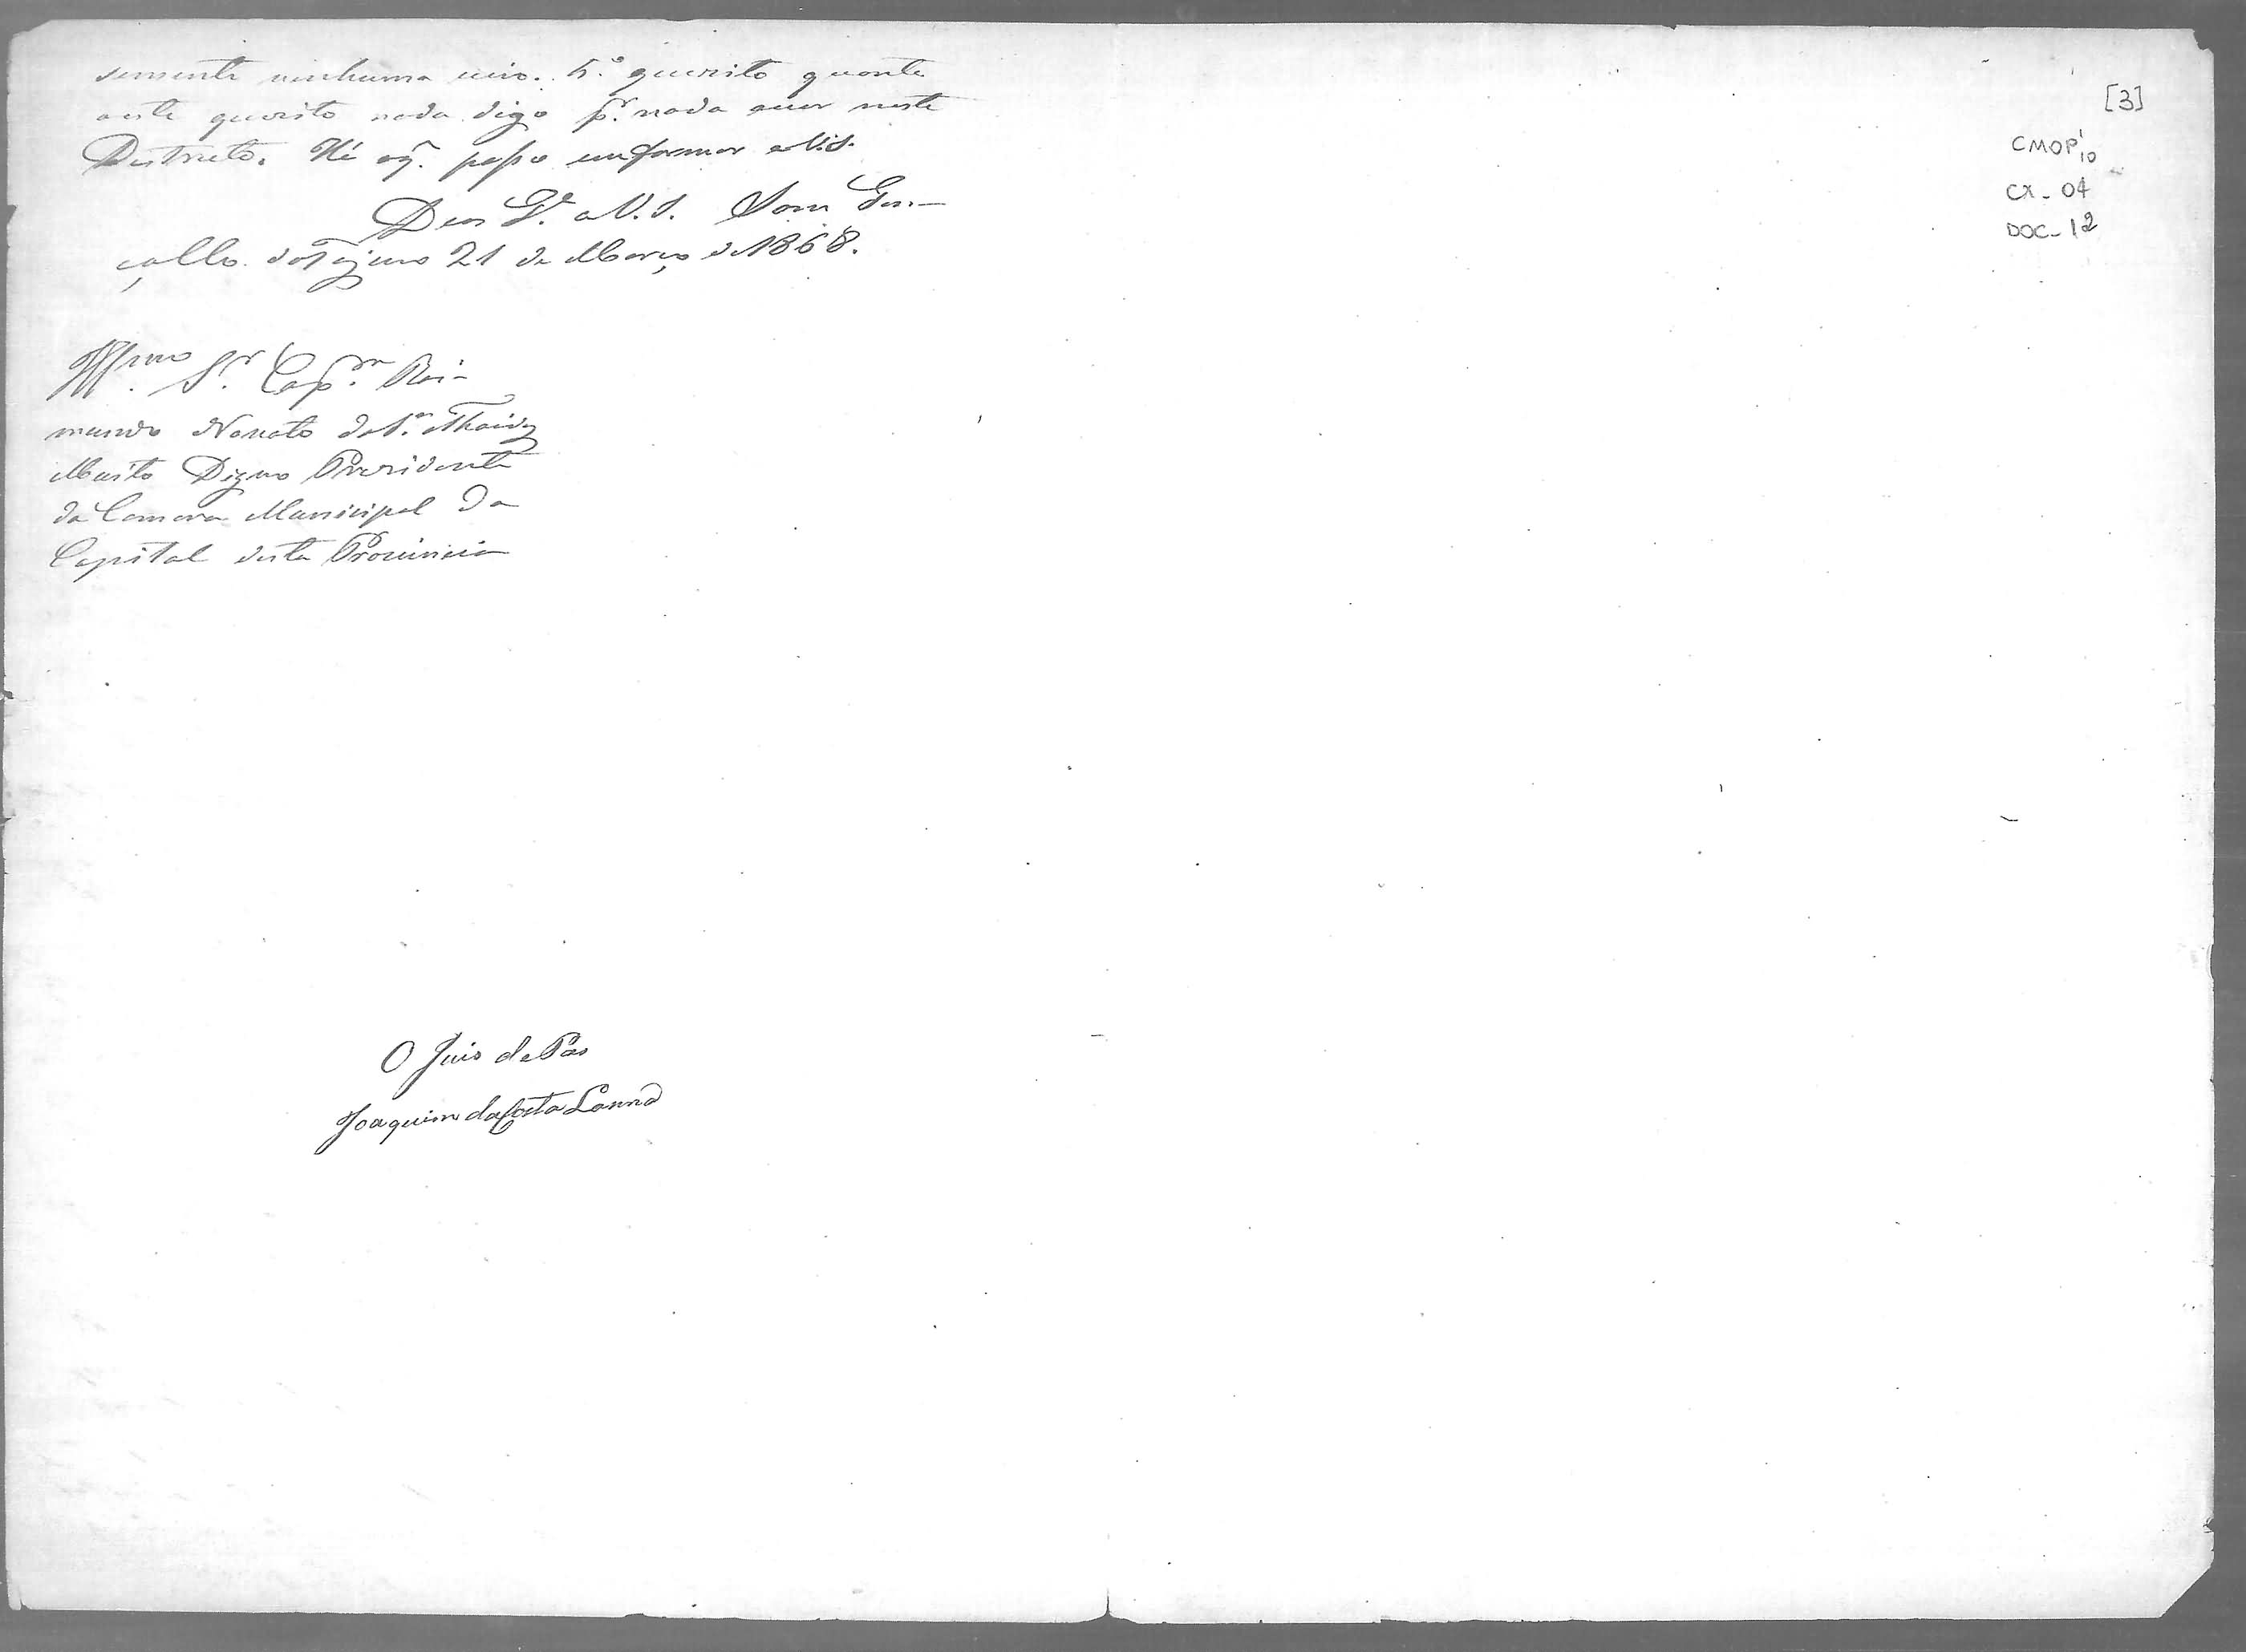 semente ninhuma  5.º quezito quante
aeste quezito nada digo p.r nada aver neste
Destricto. Hé oq. posso emformar aV.S.
Deos G.e a V.S. Som Gon-
çallo do Tijuco 21 de Março de 1868.
Illmo Sr. Cap.m Rai-
mundo Nonato de S.
Muito Digno Prezidente
da Camara Municipal da
Capital desta Provincia
O Juis de Pas
Joaquim da Costa Lanna
[3]
CMOP'10
CX-04
DOC-12